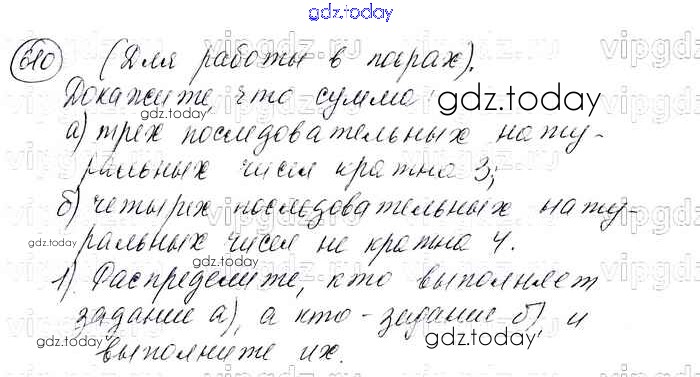 gdz.today
610 (Для работы в парах).
Докажите, что сумма:
gdz.today
а) трех последовательных нату-
gdz.today
ральных чисел кратна 3;
б) четырех последовательных нату-
gdz.today
ральных чисел не кратна 4.
1) Распределите, кто выполняет
задание а), а кто - задание б), и
gdz.today
выполните их.